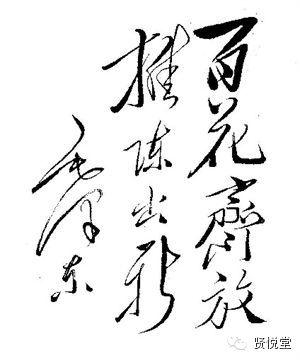 百花齊放
推陈出新
毛泽东
贤悦堂